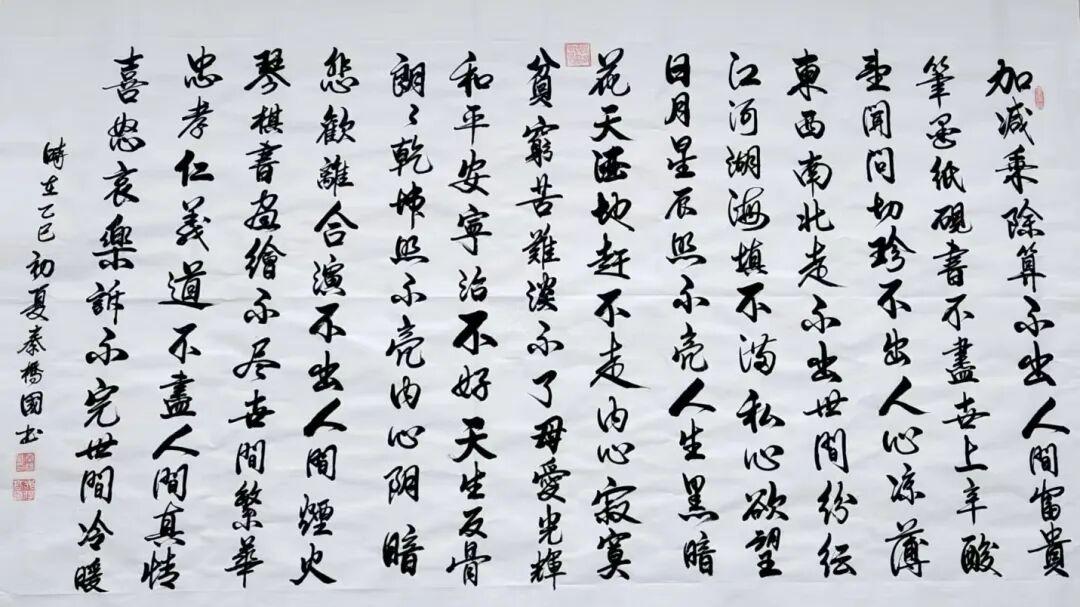 加減乘除算不出人間富貴
筆墨紙硯書不盡世上辛酸
望聞問切珍不出人心凉薄
東西南北走不出世間纷纭
江河湖海填不满私心欲望
日月星辰照不亮人生黑暗
花天酒地赶不走内心寂寞
貧窮苦難淡不了母愛光輝
和平安寧治不好天生反骨
朗々乾坤照不亮内心阴暗
悲歡離合演不出人間煙火
琴棋書画繪不尽世間繁華
忠孝仁義道不盡人間真情
喜怒哀樂訴不完世間冷暖
時在乙巳初夏秦橋國书